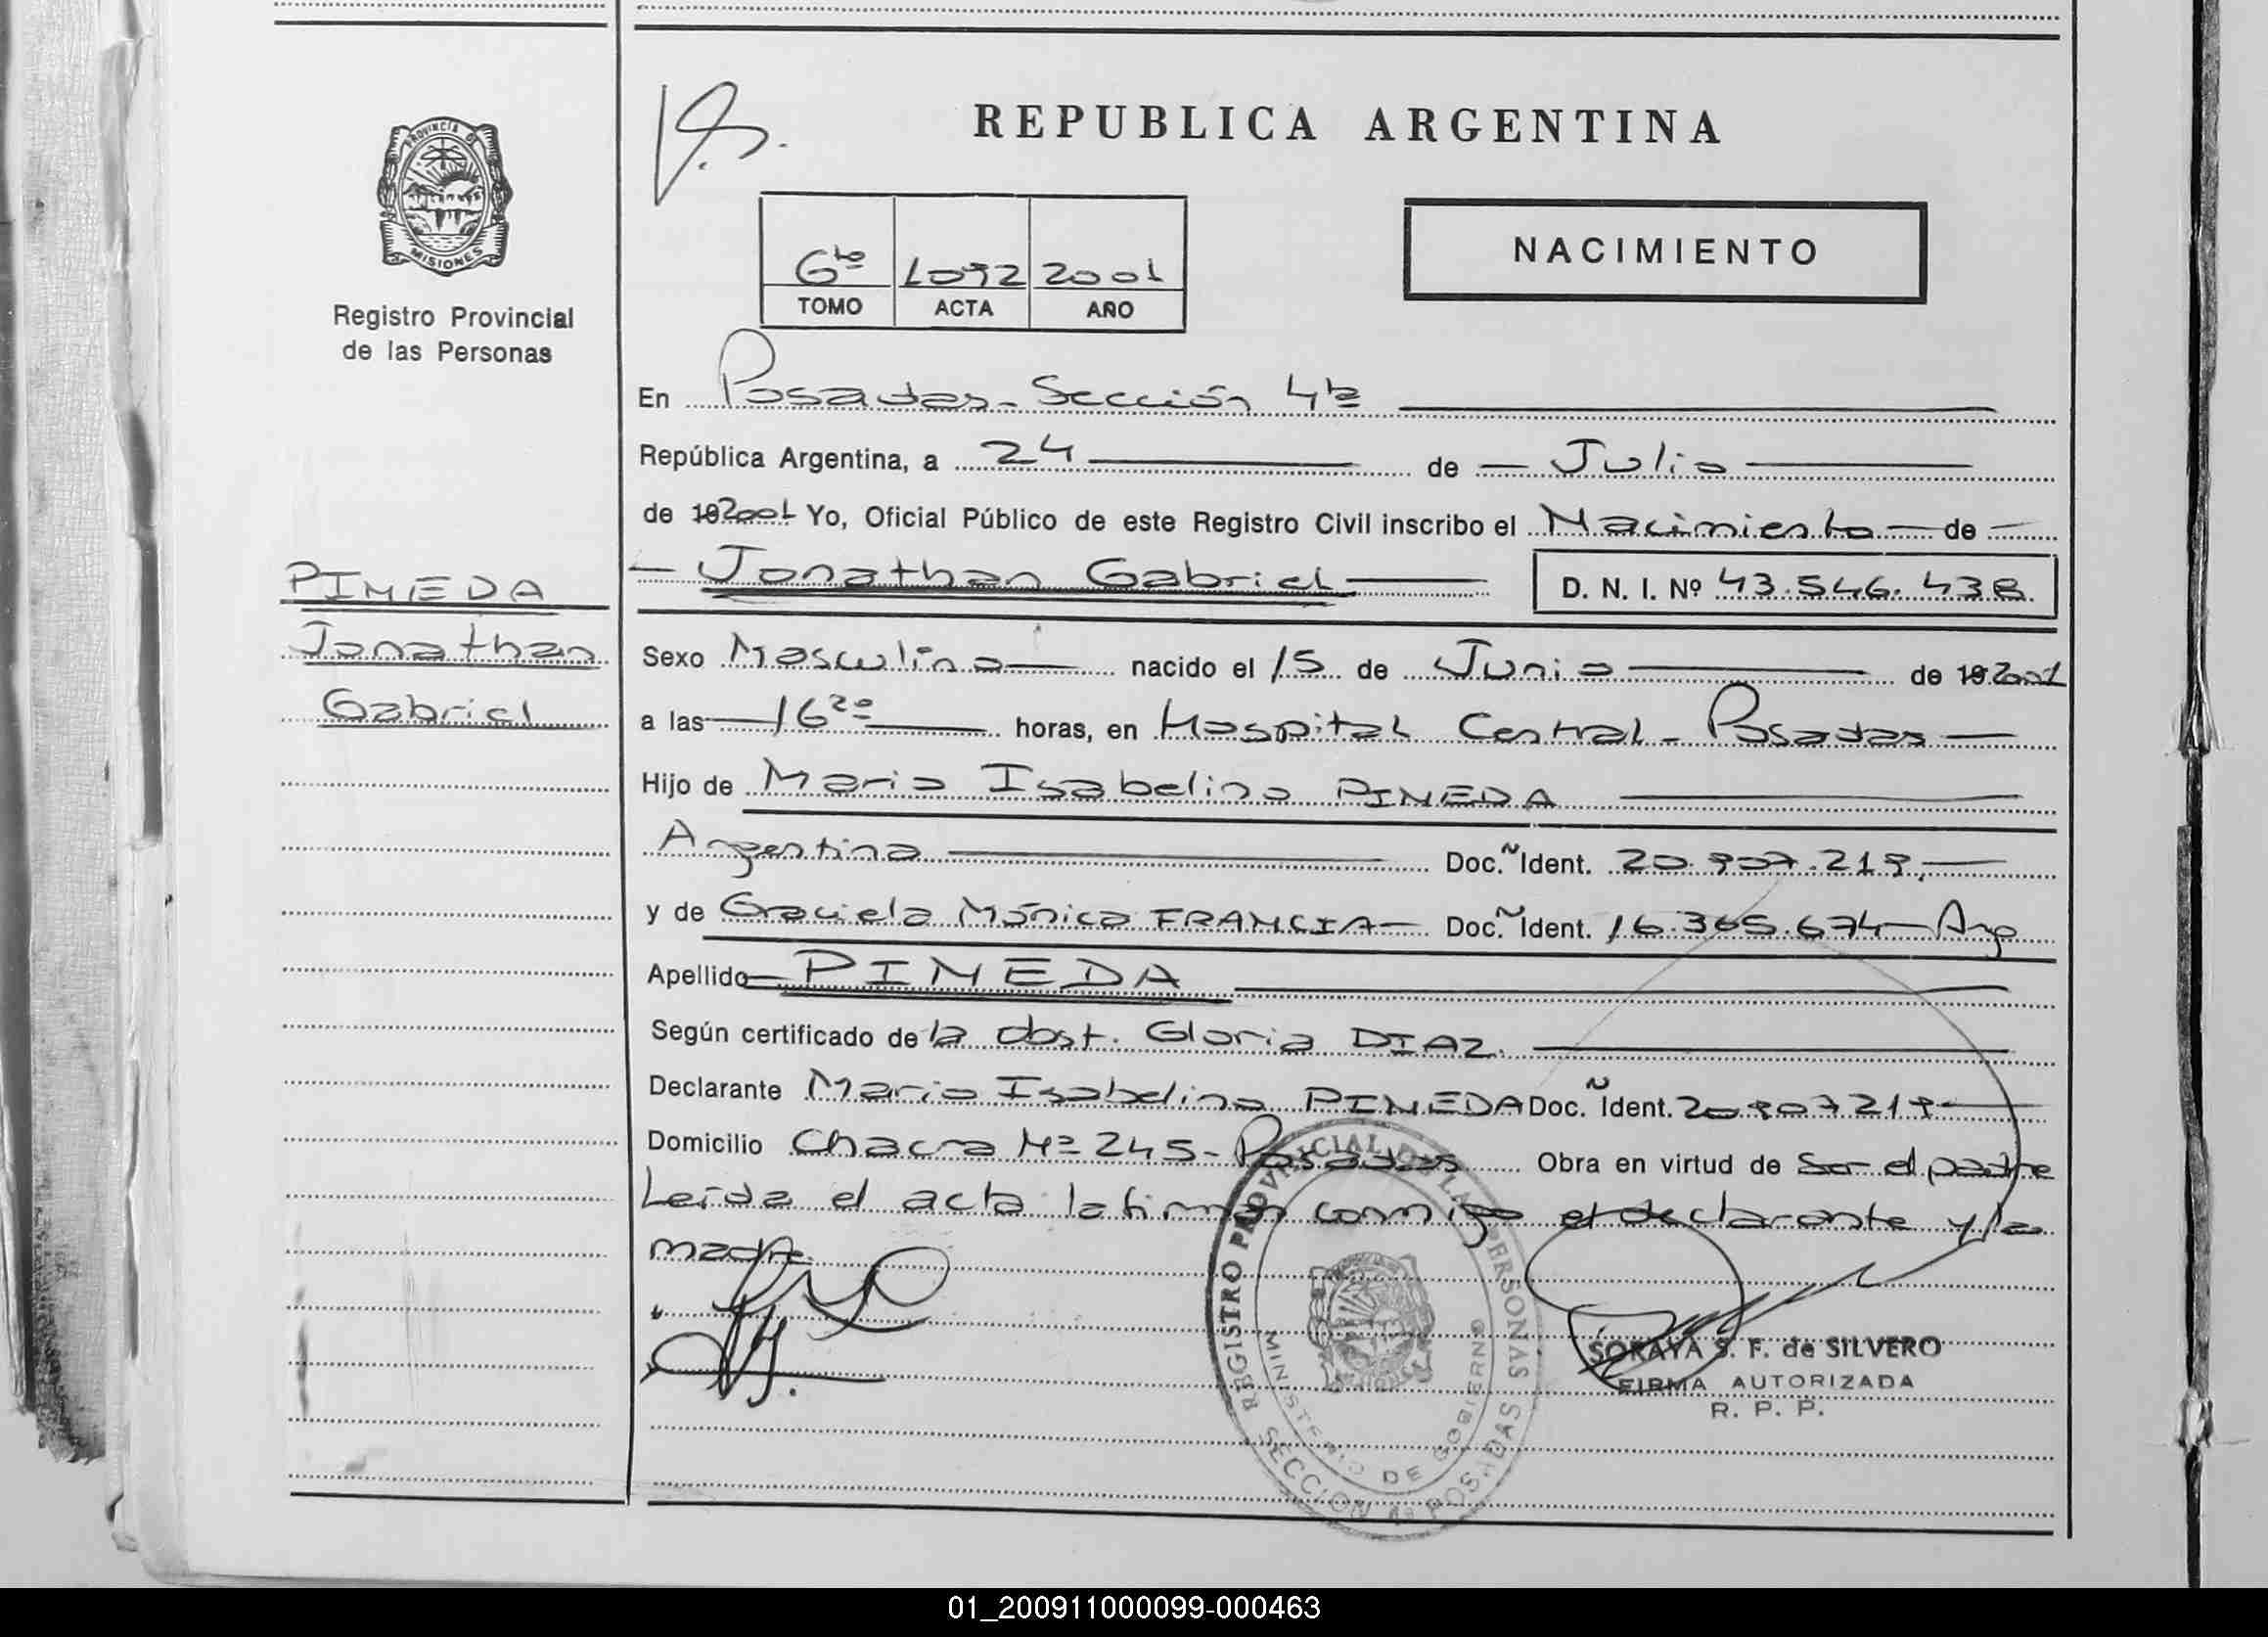 REPUBLICA ARGENTINA
PROVINCIA DE
MISIONES
Registro Provincial
de las Personas
NACIMIENTO
6to 1092 2001
TOMO ACTA AÑO
En Posadas - Sección 4ta
República Argentina, a 24 de Julio
de 192001 Yo, Oficial Público de este Registro Civil inscribo el Nacimiento de
Jonathan Gabriel D. N. I. Nº 43.546.438
PINEDA
Jonathan
Gabriel
Sexo Masculino nacido el 15 de Junio de 192001
a las 16 20 horas, en Hospital Central - Posadas
Hijo de Mario Isabelino PINEDA
Argentina Doc. Ident. 20.907.219.
y de Graciela Mónica FRANCIA Doc. Ident. 16.365.674 - Arg
Apellido PINEDA
Según certificado de la obst. Gloria DIAZ.
Declarante Mario Isabelino PINEDA Doc. Ident. 20.907219
Domicilio Chacra Nº 245 - Posadas Obra en virtud de ser el padre
Leída el acta la firman conmigo el declarante y la
madre.
REGISTRO PROVINCIAL DE LAS PERSONAS
MINISTERIO DE GOBIERNO
SECCION 4ª POSADAS
SORAYA S. F. de SILVERO
FIRMA AUTORIZADA
R. P. P.
01_200911000099-000463